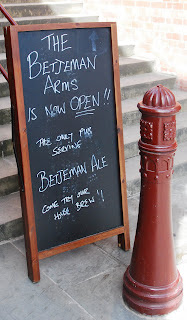 THE
BETJEMAN
ARMS
IS NOW OPEN!!
THE ONLY PUB
SERVING
BETJEMAN ALE
COME TRY OUR
HOUSE BREW!!